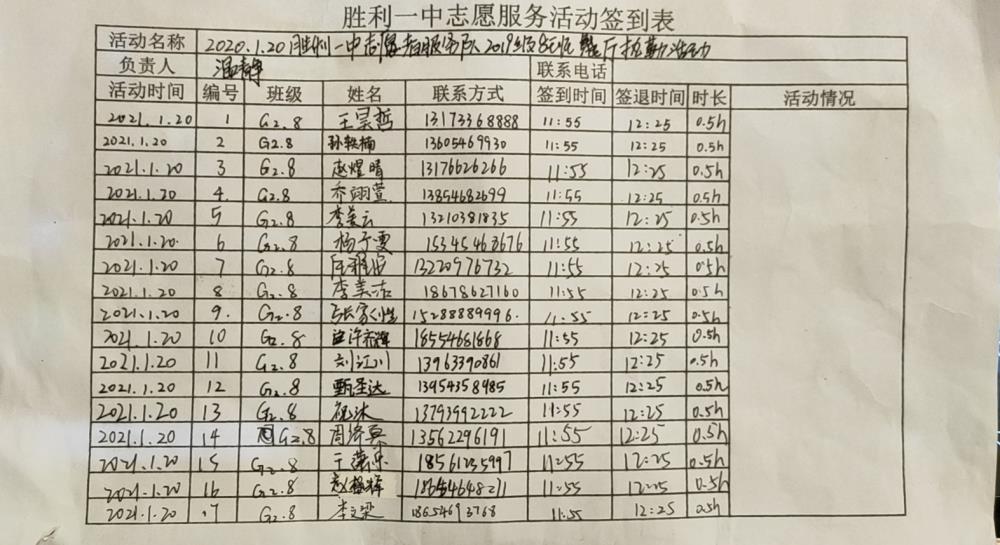 胜利一中志愿服务活动签到表
活动名称 2020.1.20胜利一中志愿者服务队2019级8班 餐厅执勤活动
负责人 温静 联系电话
活动时间 编号 班级 姓名 联系方式 签到时间 签退时间 时长 活动情况
2021.1.20 1 G2.8 王昊哲 13173368888 11:55 12:25 0.5h
2021.1.20 2 G2.8 孙轶楠 13605469930 11:55 12:25 0.5h
2021.1.20 3 G2.8 赵煜晴 13176626266 11:55 12:25 0.5h
2021.1.20 4. G2.8 乔翊萱 13854682699 11:55 12:25 0.5h
2021.1.20 5 G2.8 李美云 13210381835 11:55 12:25 0.5h
2021.1.20. 6 G2.8 杨子雯 15345468676 11:55 12:25 0.5h
2021.1.20 7 G2.8 13220976732 11:55 12:25 0.5h
2021.1.20 8 G2.8 李美洁 18678627160 11:55 12:25 0.5h
2021.1.20 9. G2.8 张家 15288889996. 11:55 12:25 0.5h
2021.1.20 10 G2.8 18554681868 11:55 12:25 0.5h
2021.1.20 11 G2.8 刘江川 13963390861 11:55 12:25 0.5h
2021.1.20 12 G2.8 甄圣达 13954358985 11:55 12:25 0.5h
2021.1.20 13 G2.8 祝沐 13793992222 11:55 12:25 0.5h
2021.1.20 14 G2.8 周 13562296191 11:55 12:25 0.5h
2021.1.20 15 G2.8 于 18561235997 11:55 12:25 0.5h
2021.1.20 16 G2.8 赵 18654648211 11:55 12:25 0.5h
2021.1.20 17 G2.8 李文梁 18654693768 11:55 12:25 0.5h